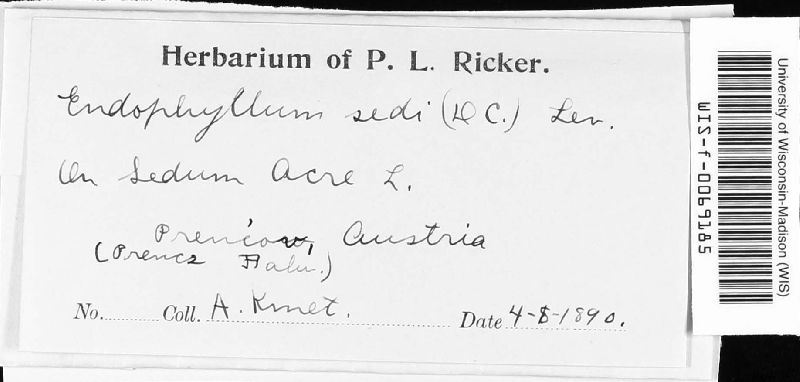 Herbarium of P. L. Ricker.
Endophyllum sedi (DC.) Lev.
On Sedum Acre L.
Prenčow, Austria
(Prencz Falu.)
No. Coll. A. Kmet. Date 4-8-1890.
University of Wisconsin-Madison (WIS)
WIS-f-0069185